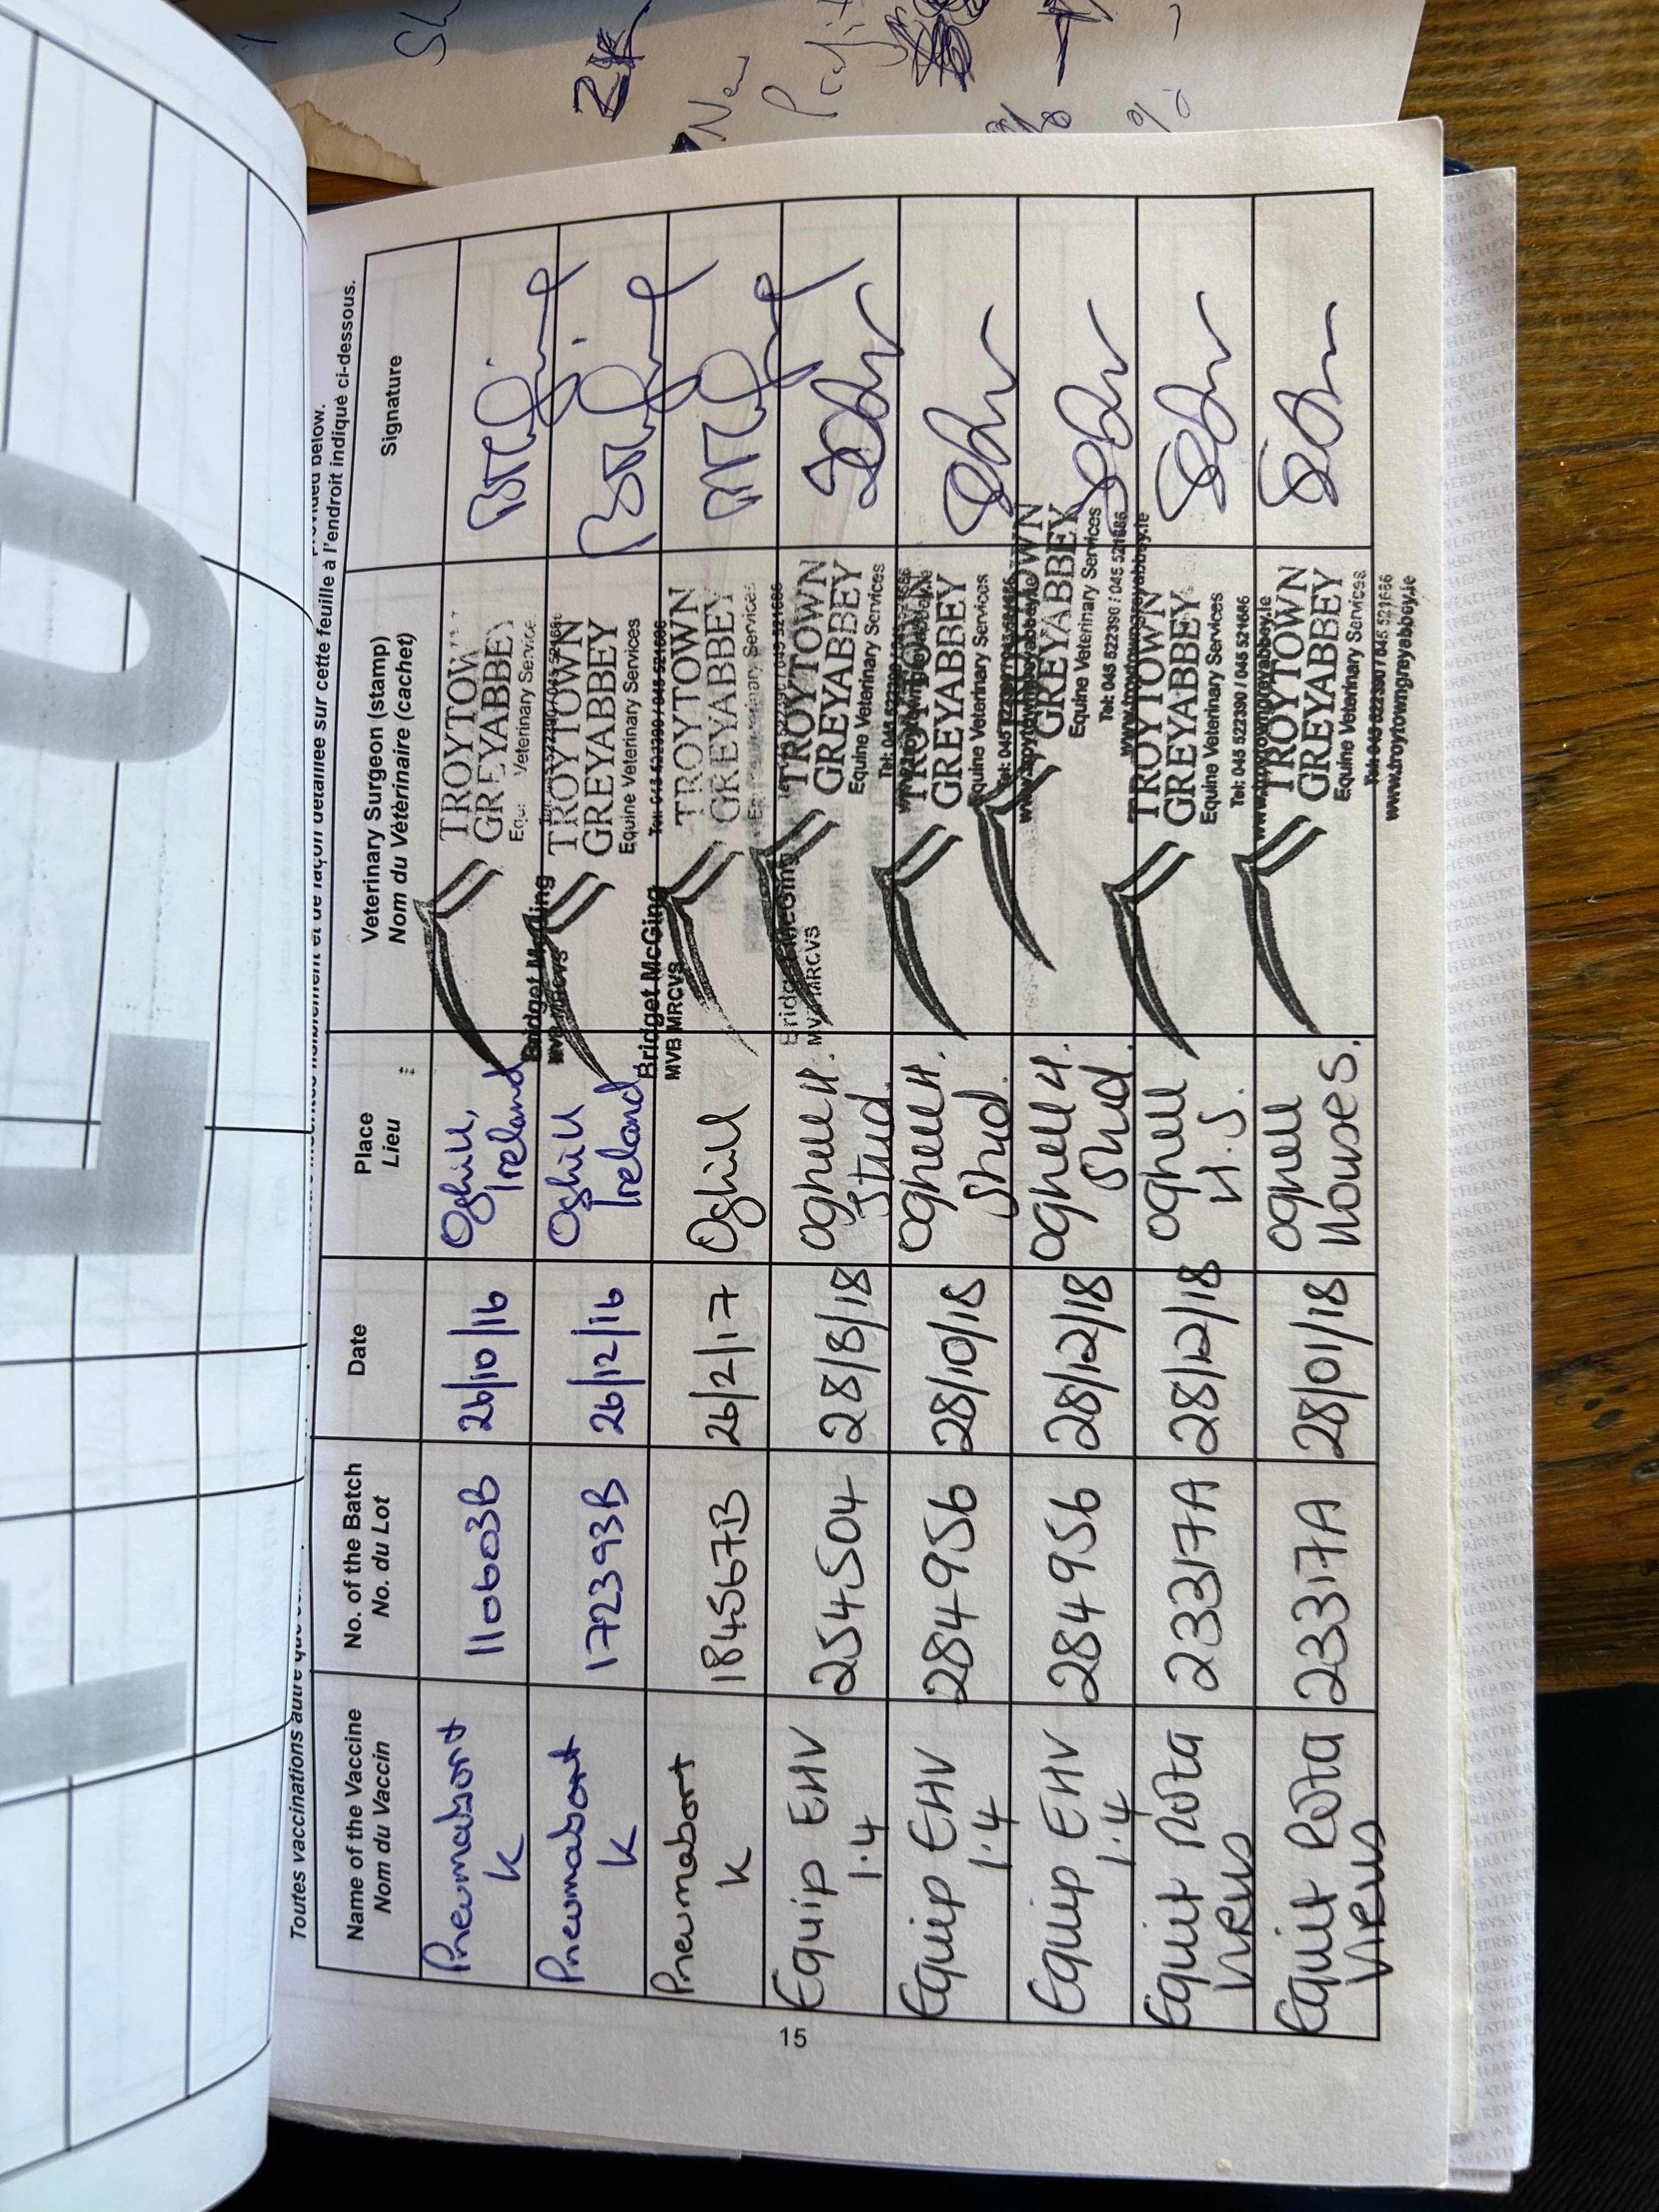 provided below.
Toutes vaccinations autre que
et de façon détaillée sur cette feuille à l'endroit indiqué ci-dessous.
Name of the Vaccine
Nom du Vaccin
No. of the Batch
No. du Lot
Date
Place
Lieu
Veterinary Surgeon (stamp)
Nom du Vétérinaire (cachet)
Signature
Pneumabort
K
110603B
26/10/16
Oghill,
Ireland
TROYTOWN
GREYABBEY
Veterinary Service
Bridget McGing
MVB MRCVS
Pneumabort
K
172393B
26/12/16
Oghill
Ireland
TROYTOWN
GREYABBEY
Equine Veterinary Services
Tel: 045 522390 / 045 521686
Bridget McGing
MVB MRCVS
Pneumabort
K
184567B
26/2/17
Oghill
TROYTOWN
GREYABBEY
Equine Veterinary Services
Bridget McGing
MVB MRCVS
Equip EHV
1.4
254504
28/8/18
Oghill H.
Stud.
TROYTOWN
GREYABBEY
Equine Veterinary Services
Equip EHV
1.4
284956
28/10/18
Oghill H.
Stud.
TROYTOWN
GREYABBEY
Equine Veterinary Services
Equip EHV
1.4
284956
28/12/18
Oghill H.
Stud.
TROYTOWN
GREYABBEY
Equine Veterinary Services
Tel: 045 522390 / 045 521686
www.troytowngreyabbey.ie
Equip Rota
Virus
23317A
28/12/18
Oghill
H.S.
TROYTOWN
GREYABBEY
Equine Veterinary Services
Tel: 045 522390 / 045 521686
www.troytowngreyabbey.ie
Equip Rota
Virus
23317A
28/01/18
Oghill
Houses.
TROYTOWN
GREYABBEY
Equine Veterinary Services
Tel: 045 522390 / 045 521686
www.troytowngreyabbey.ie
15